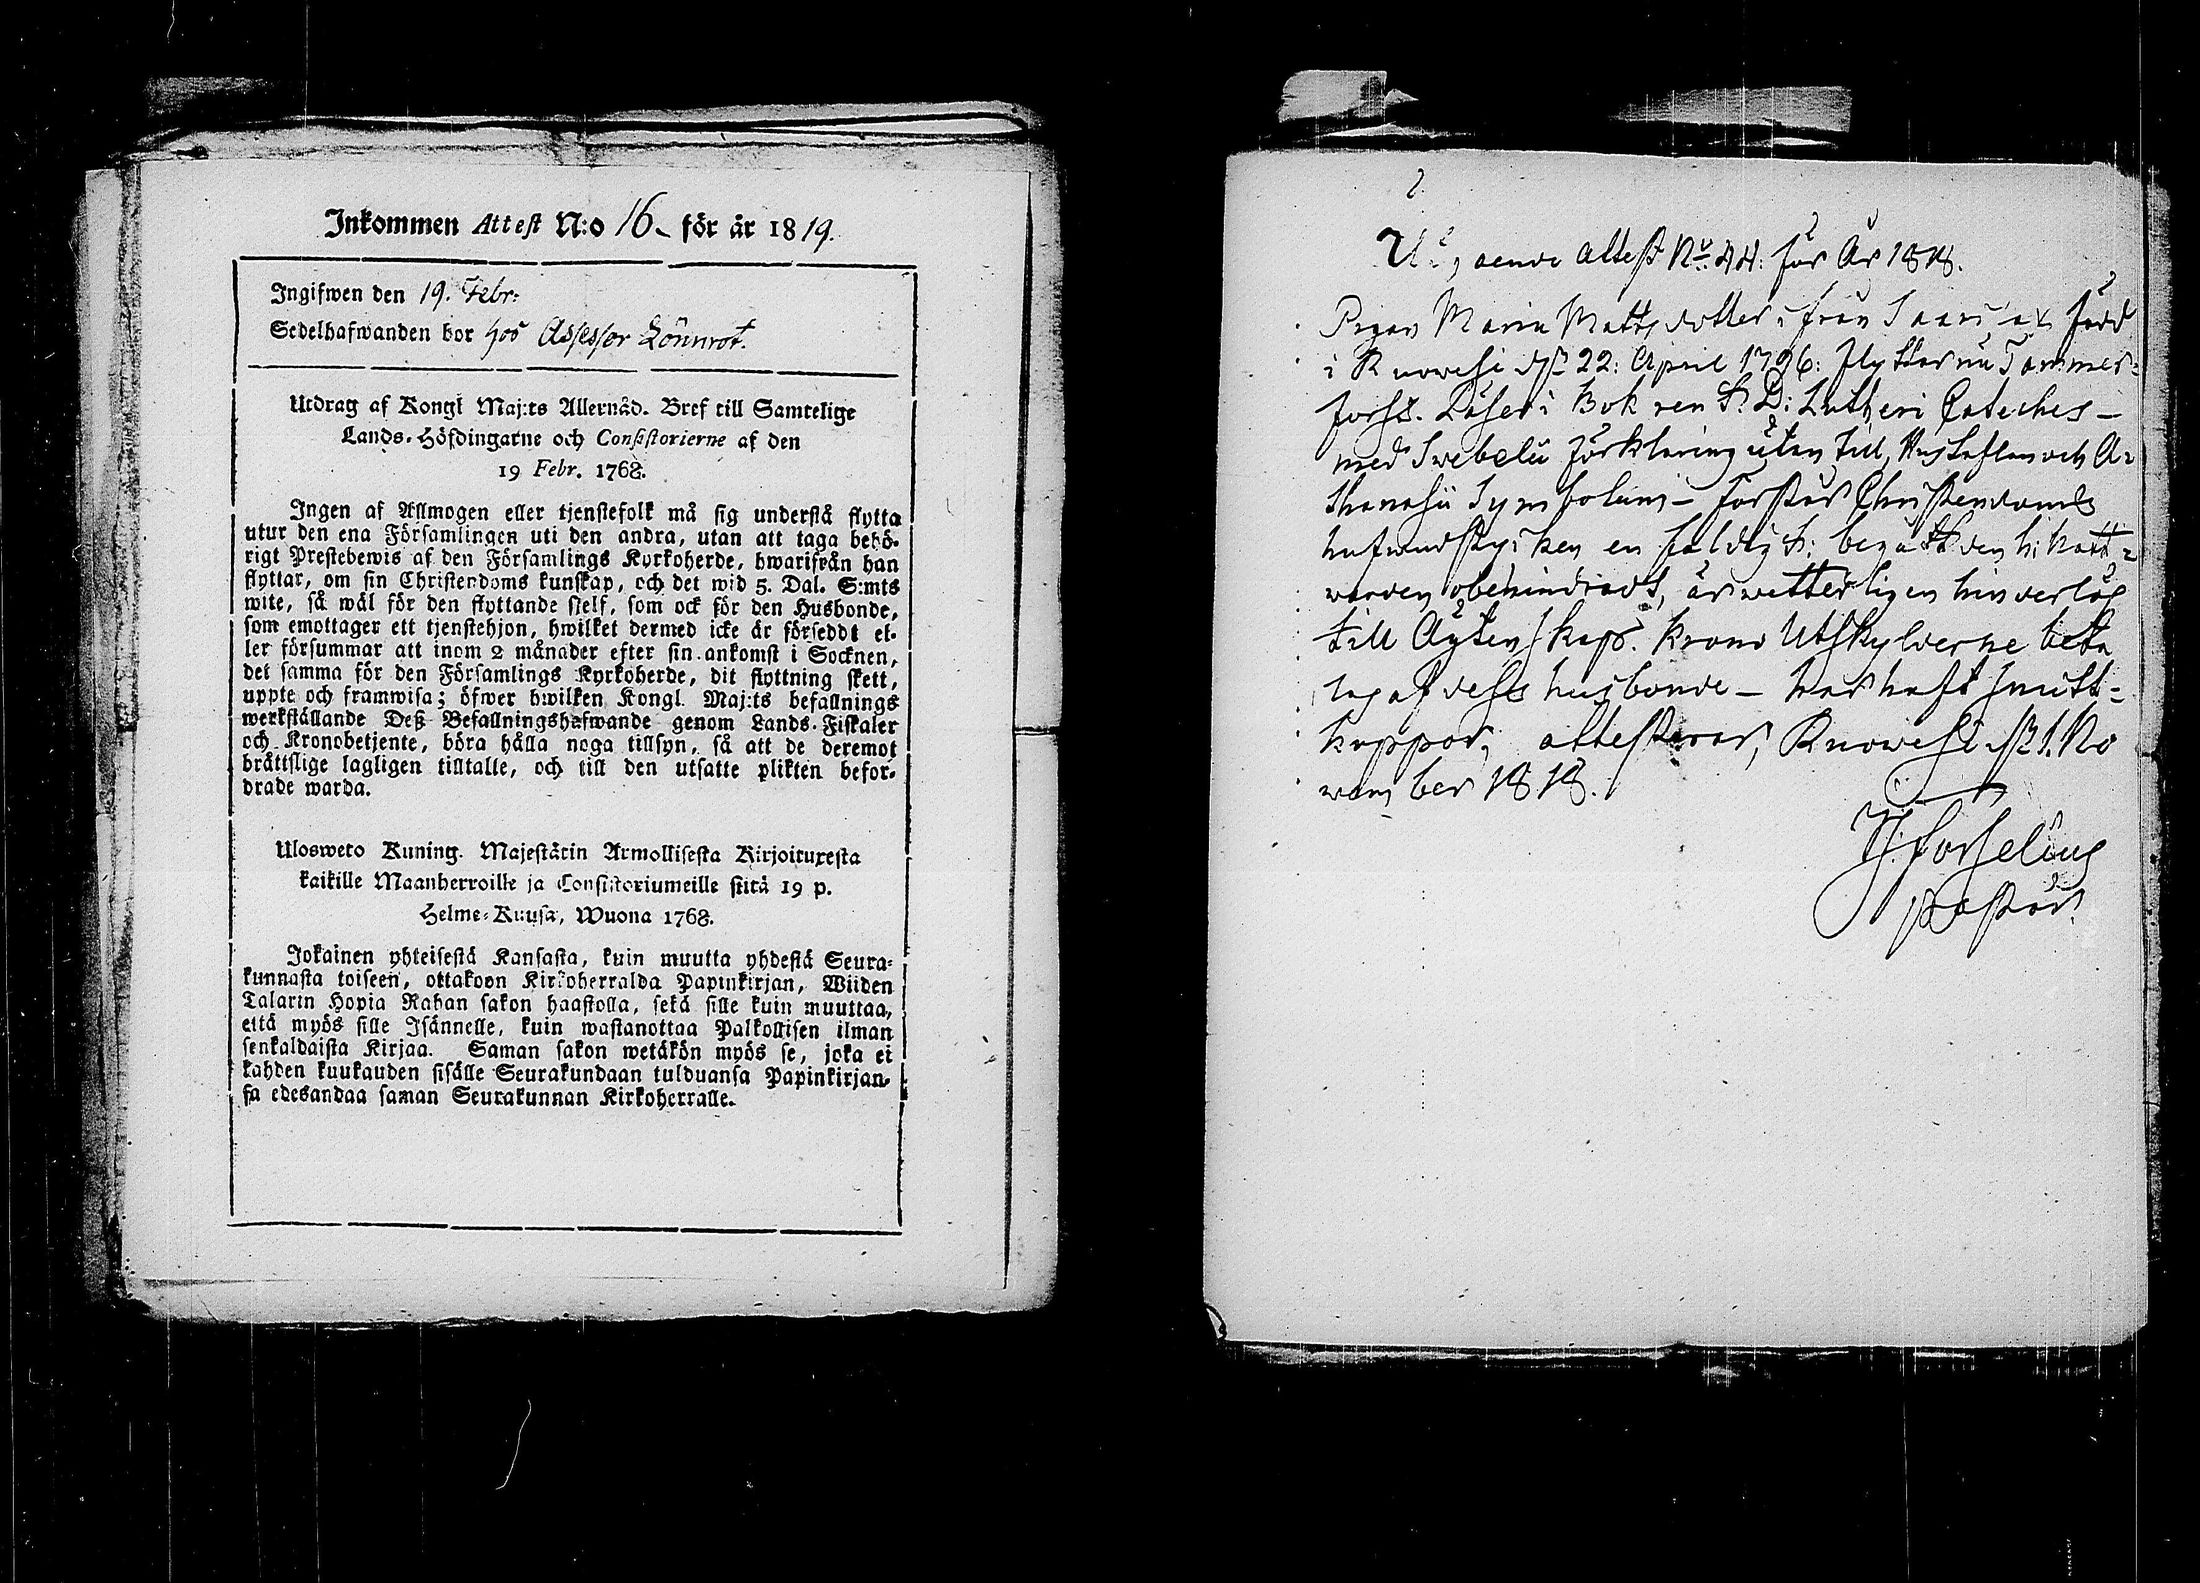 Inkommen Attest N:o 16. för år 1819.
Ingifwen den 19. Febr:
Sedelhafwanden bor hos Assessor Lönnrot.
Utdrag af Kongl Maj:ts Allernåd. Bref till Samtelige
Lands-Höfdingarne och Consistorierne af den
19 Febr. 1768.
Ingen af Allmogen eller tjenstefolk må sig understå flytta
utur den ena Församlingen uti den andra, utan att taga behö-
rigt Prestebewis af den Församlings Kyrkoherde, hwarifrån han
flyttar, om sin Christendoms kunskap, och det wid 5. Dal. S:mts
wite, så wäl för den flyttande sjelf, som ock för den Husbonde,
som emottager ett tjenstehjon, hwilket dermed icke är förseddt el-
ler försummar att inom 2 månader efter sin ankomst i Socknen,
det samma för den Församlings Kyrkoherde, dit flyttning skett,
uppte och framwisa; öfwer hwilken Kongl. Maj:ts befallnings
werkställande Deß Befallningshafwande genom Lands-Fiskaler
och Kronobetjente, böra hålla noga tillsyn, så att de deremot
bråttslige lagligen tilltalte, och till den utsatte plikten befor-
drade warda.
Ulosweto Kuning. Majestätin Armollisesta Kirjoituxesta
kaikille Maanherroille ja Consistoriumeille siitä 19 p.
Helme-Kuusa, Wuona 1768.
Jokainen yhteisestä Kansasta, kuin muutta yhdestä Seura-
kunnasta toiseen, ottakoon Kirkoherralda Papinkirjan, Wiiden
Talarin Hopia Rahan sakon haastolla, sekä sille kuin muuttaa,
että myös sille Isännelle, kuin wastanottaa Palkollisen ilman
senkaldaista Kirjaa. Saman sakon wetäkön myös se, joka ei
kahden kuukauden sisälle Seurakundaan tulduansa Papinkirjan-
sa edesandaa saman Seurakunnan Kirkoherralle.
attest No 44: för År 1818.
Pigan Maria Mattsdotter ifrån Saari född
i Ruowesi d 22: April 1796: flyttar nu Tammer-
forss. Läser i Bok ren S. D: Lutheri Cateches -
med Swebelii förklaring utan till, Hustaflan och A-
thanasii Symbolum - förstår Christendoms
hufwudstycken enfaldigt: begått den h: Natt-
warden obehindradt, är wetterligen hinderlös
till Äktenskap. Krono Utskylderne beta
lag af dess husbonde - har haft smitt-
koppor, attesterar, Ruowesi d 1. No
wember 1818.
H: Forselius
Pastor.